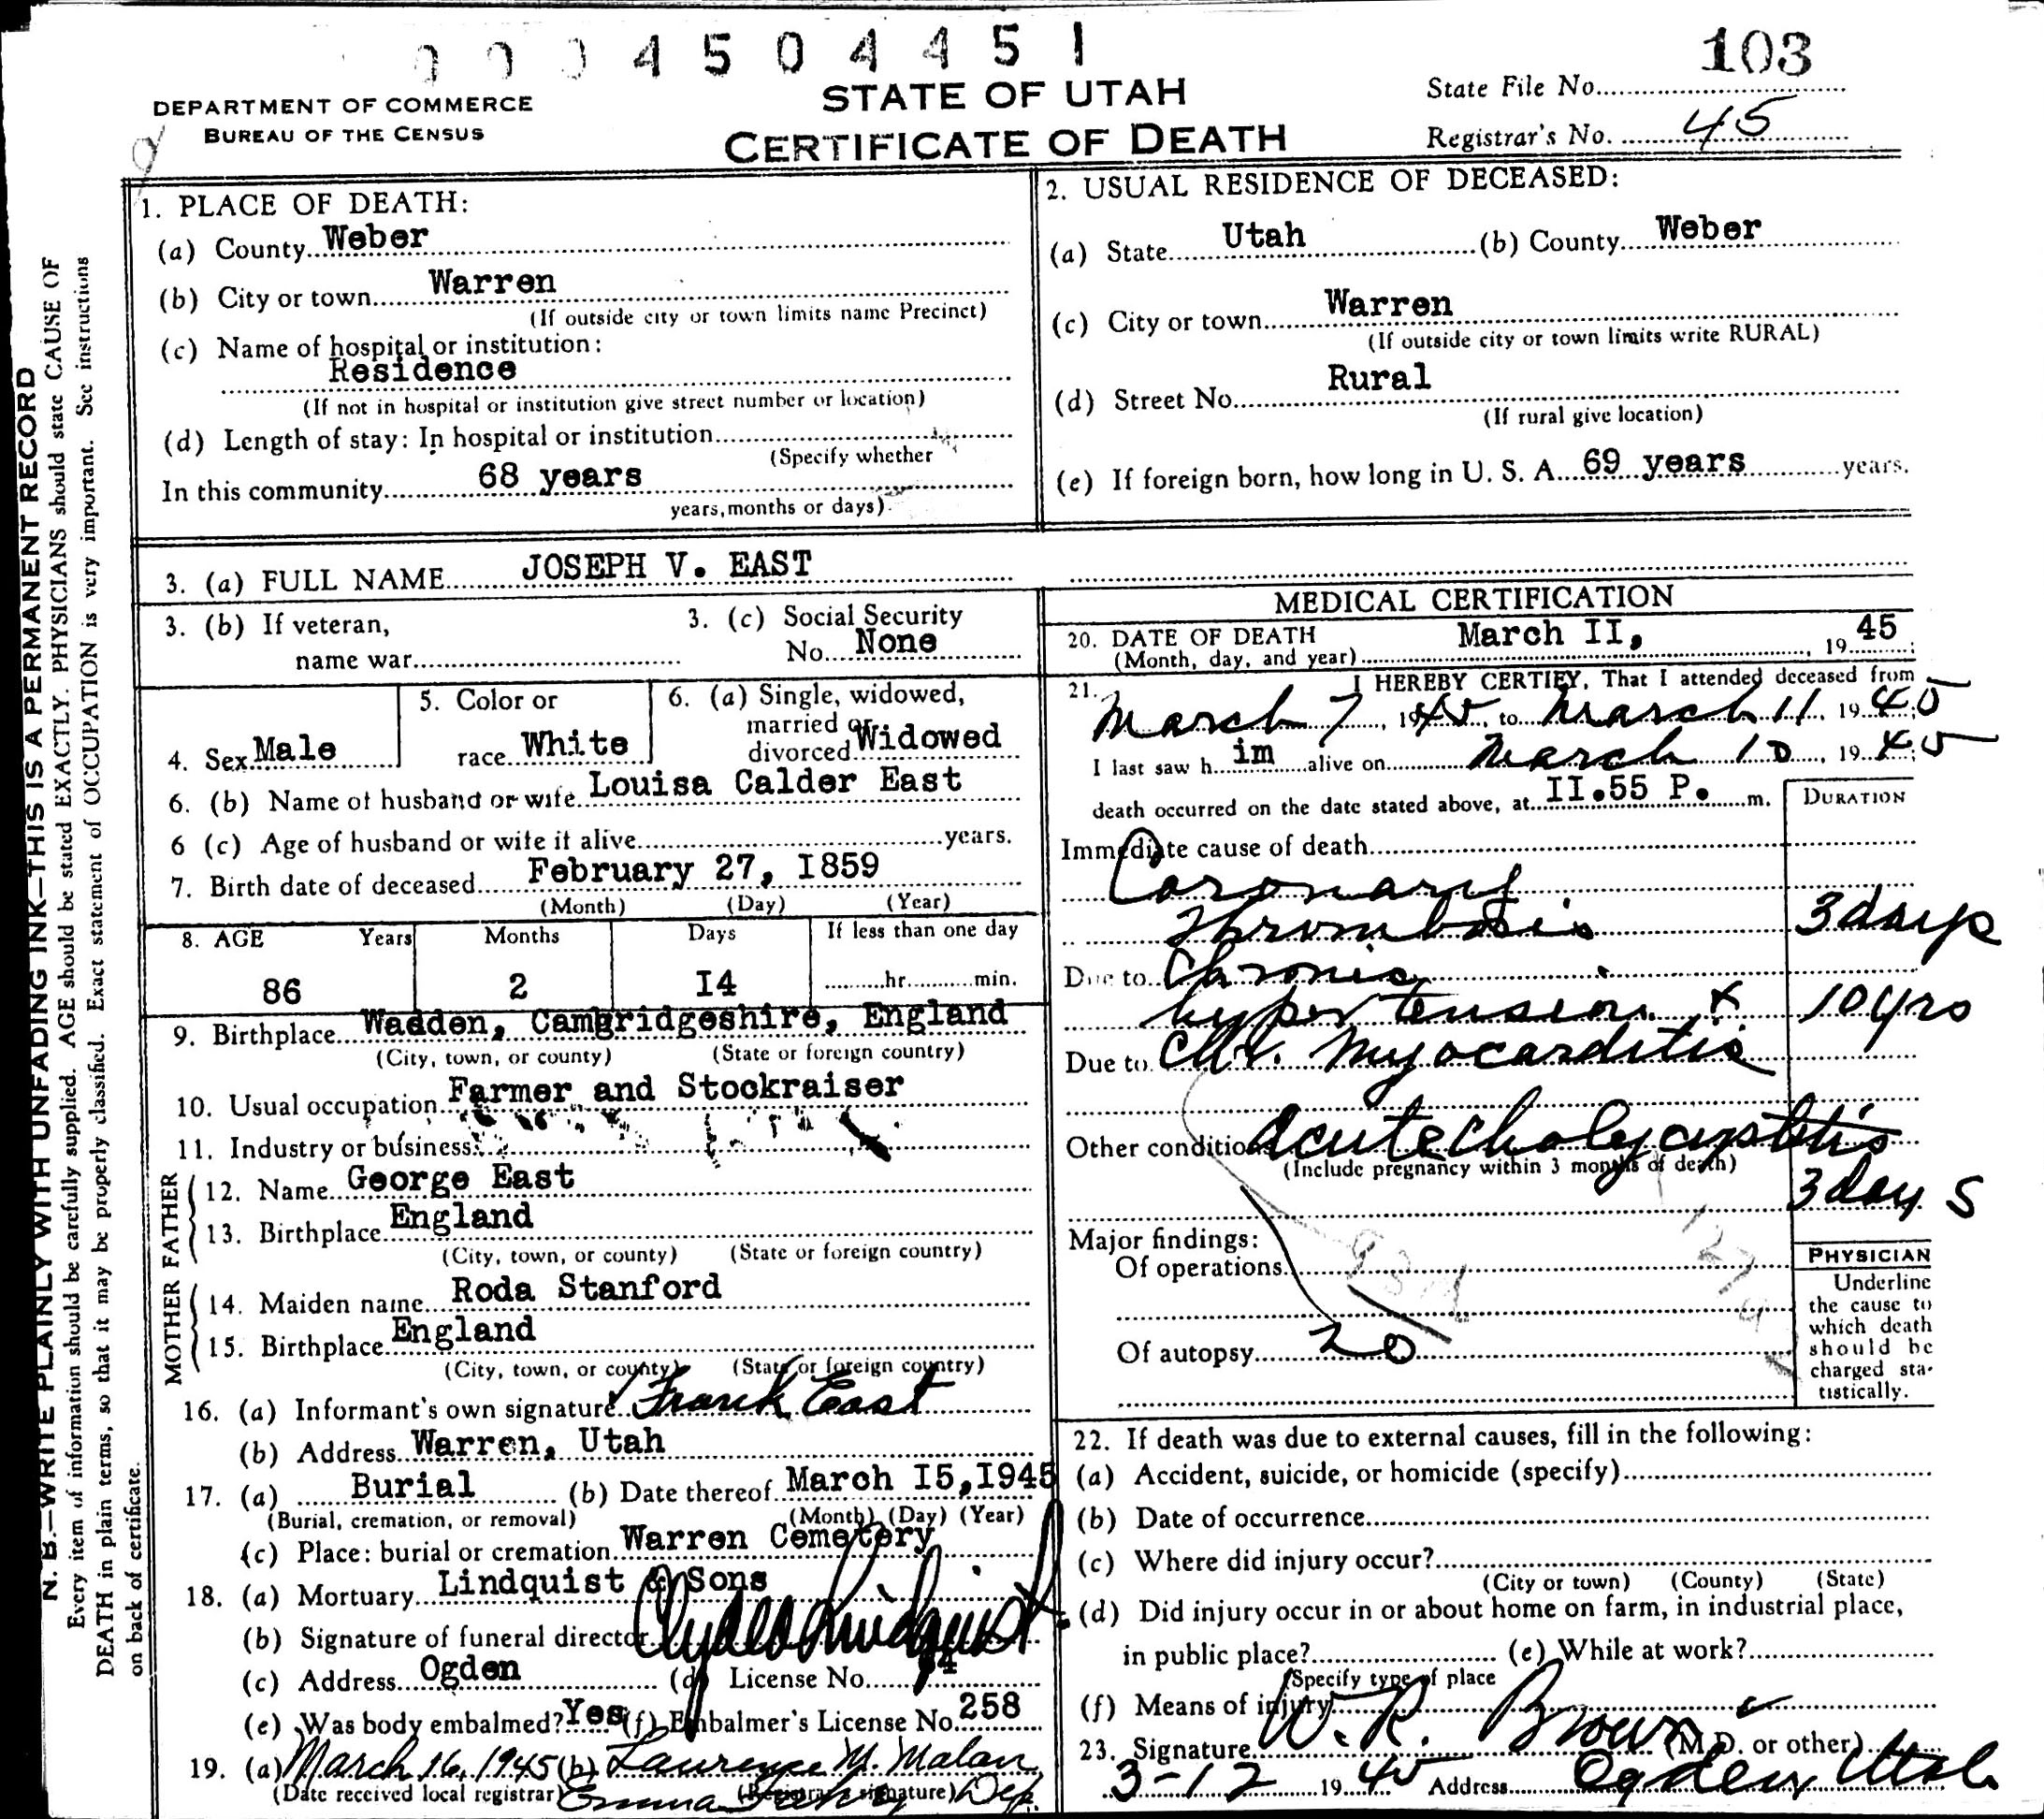 0 0 0 4 5 0 4 4 5 1
103
DEPARTMENT OF COMMERCE
BUREAU OF THE CENSUS
STATE OF UTAH
CERTIFICATE OF DEATH
State File No.
Registrar's No. 45
N. B.—WRITE PLAINLY WITH UNFADING INK—THIS IS A PERMANENT RECORD
Every item of information should be carefully supplied. AGE should be stated EXACTLY. PHYSICIANS should state CAUSE OF
DEATH in plain terms, so that it may be properly classified. Exact statement of OCCUPATION is very important. See instructions
on back of certificate.
1. PLACE OF DEATH:
(a) County Weber
(b) City or town Warren
(If outside city or town limits name Precinct)
(c) Name of hospital or institution:
Residence
(If not in hospital or institution give street number or location)
(d) Length of stay: In hospital or institution
(Specify whether
In this community 68 years
years, months or days)
2. USUAL RESIDENCE OF DECEASED:
(a) State Utah (b) County Weber
(c) City or town Warren
(If outside city or town limits write RURAL)
(d) Street No. Rural
(If rural give location)
(e) If foreign born, how long in U. S. A. 69 years years.
3. (a) FULL NAME JOSEPH V. EAST
3. (b) If veteran,
name war
3. (c) Social Security
No. None
4. Sex Male
5. Color or
race White
6. (a) Single, widowed,
married or
divorced Widowed
6. (b) Name of husband or wife Louisa Calder East
6 (c) Age of husband or wife if alive years.
7. Birth date of deceased February 27, I859
(Month) (Day) (Year)
8. AGE Years Months Days If less than one day
86 2 I4 hr. min.
9. Birthplace Wadden, Cambridgeshire, England
(City, town, or county) (State or foreign country)
10. Usual occupation Farmer and Stockraiser
11. Industry or business
FATHER
12. Name George East
13. Birthplace England
(City, town, or county) (State or foreign country)
MOTHER
14. Maiden name Roda Stanford
15. Birthplace England
(City, town, or county) (State or foreign country)
16. (a) Informant's own signature Frank East
(b) Address Warren, Utah
17. (a) Burial (b) Date thereof March I5, I945
(Burial, cremation, or removal) (Month) (Day) (Year)
(c) Place: burial or cremation Warren Cemetery
18. (a) Mortuary Lindquist & Sons
(b) Signature of funeral director Clyde Lindquist
(c) Address Ogden (d) License No.
(e) Was body embalmed? Yes (f) Embalmer's License No. 258
19. (a) March 16, 1945 (b) Laurence M. Malan
(Date received local registrar) (Registrar's signature) Dep.
Emma
MEDICAL CERTIFICATION
20. DATE OF DEATH
(Month, day, and year) March II, 19 45
21. I HEREBY CERTIFY, That I attended deceased from
March 7, 1945, to March 11, 19 45
I last saw h im alive on March 10, 19 45
death occurred on the date stated above, at II.55 P. m.
DURATION
Immediate cause of death
Coronary
Thrombosis 3 days
Due to Chronic
hypertension & 10 yrs
Due to Chr. Myocarditis
Other conditions Acute cholecystitis
(Include pregnancy within 3 months of death)
3 days
Major findings:
Of operations
Of autopsy
PHYSICIAN
Underline
the cause to
which death
should be
charged sta-
tistically.
22. If death was due to external causes, fill in the following:
(a) Accident, suicide, or homicide (specify)
(b) Date of occurrence
(c) Where did injury occur?
(City or town) (County) (State)
(d) Did injury occur in or about home on farm, in industrial place,
in public place? (e) While at work?
(Specify type of place
(f) Means of injury
23. Signature W. R. Brown (M.D. or other)
3-12 19 45 Address Ogden, Utah